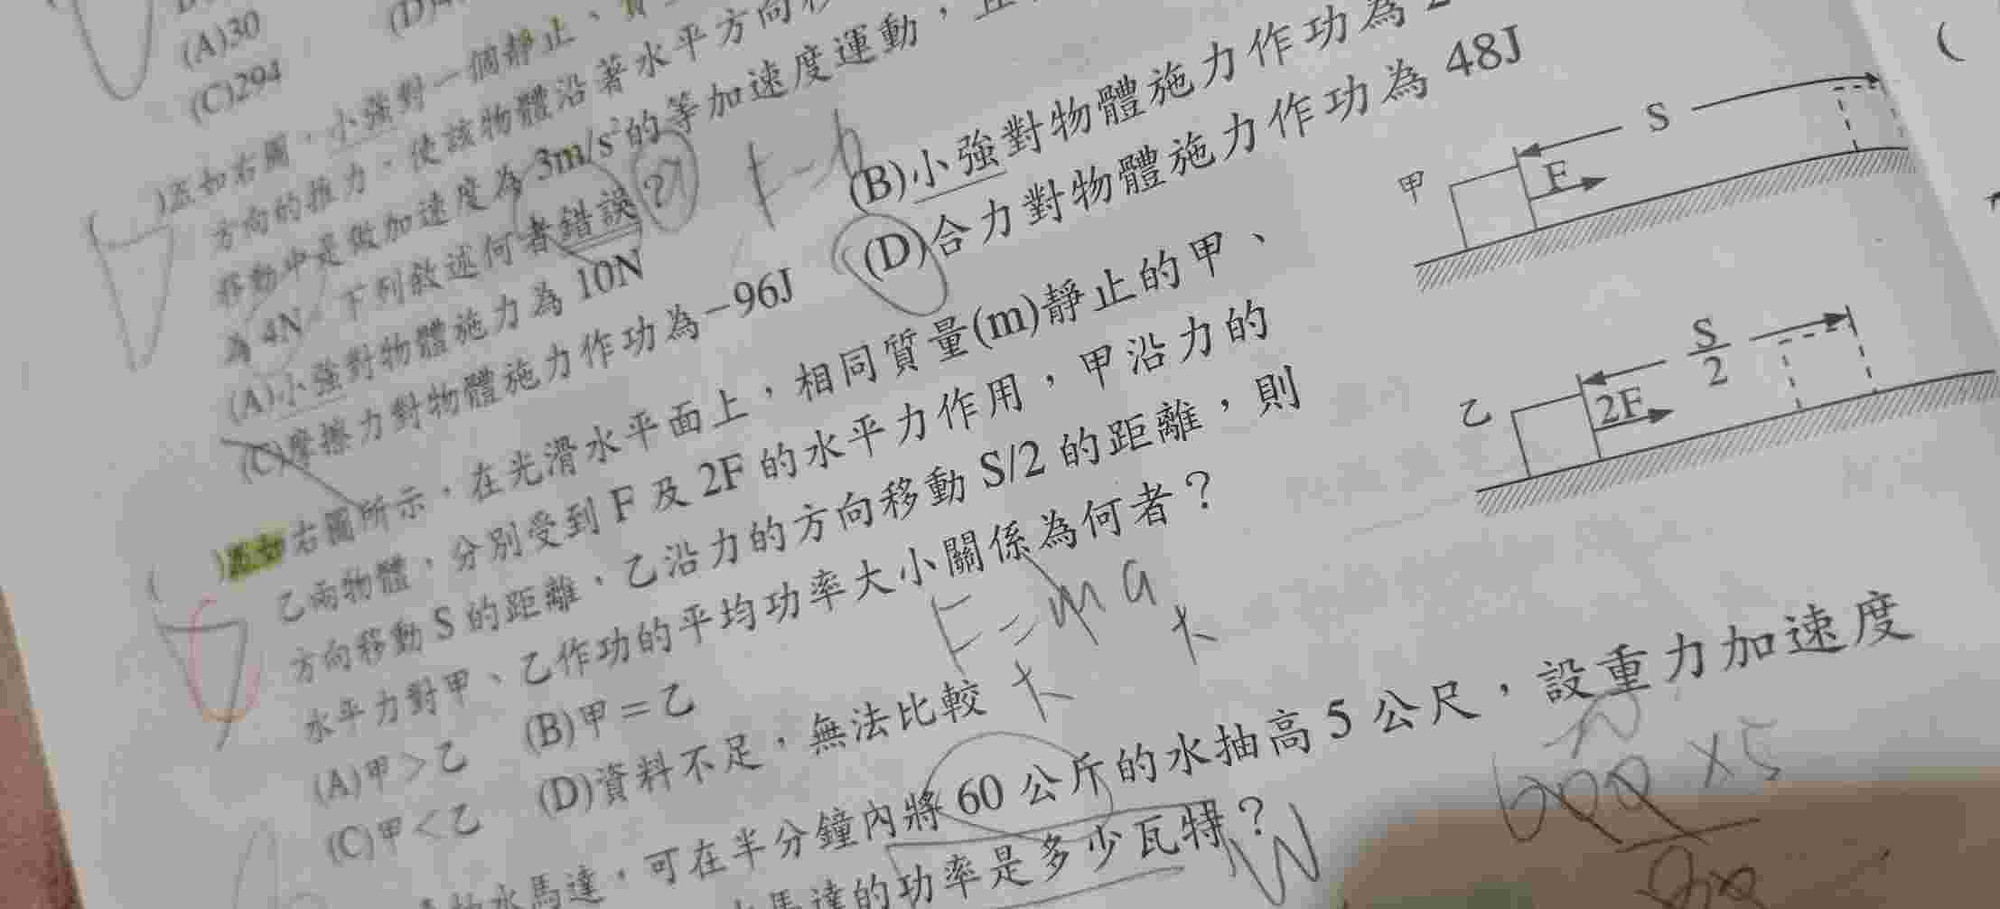 (A)30
(C)294
如右圖，小強對一個靜止、
方向的推力，使該物體沿著水平方向
移動中是做加速度為 3m/s²的等加速度運動，且
為 4N，下列敘述何者錯誤？
(A)小強對物體施力為 10N
(B)小強對物體施力作功為
(C)摩擦力對物體施力作功為－96J
(D)合力對物體施力作功為 48J
甲
F
S
如右圖所示，在光滑水平面上，相同質量(m)靜止的甲、
乙兩物體，分別受到 F 及 2F 的水平力作用，甲沿力的
方向移動 S 的距離，乙沿力的方向移動 S/2 的距離，則
水平力對甲、乙作功的平均功率大小關係為何者？
(A)甲＞乙
(B)甲＝乙
(C)甲＜乙
(D)資料不足，無法比較
乙
2F
S
2
F=ma
抽水馬達，可在半分鐘內將 60 公斤的水抽高 5 公尺，設重力加速度
馬達的功率是多少瓦特？
W
600×5